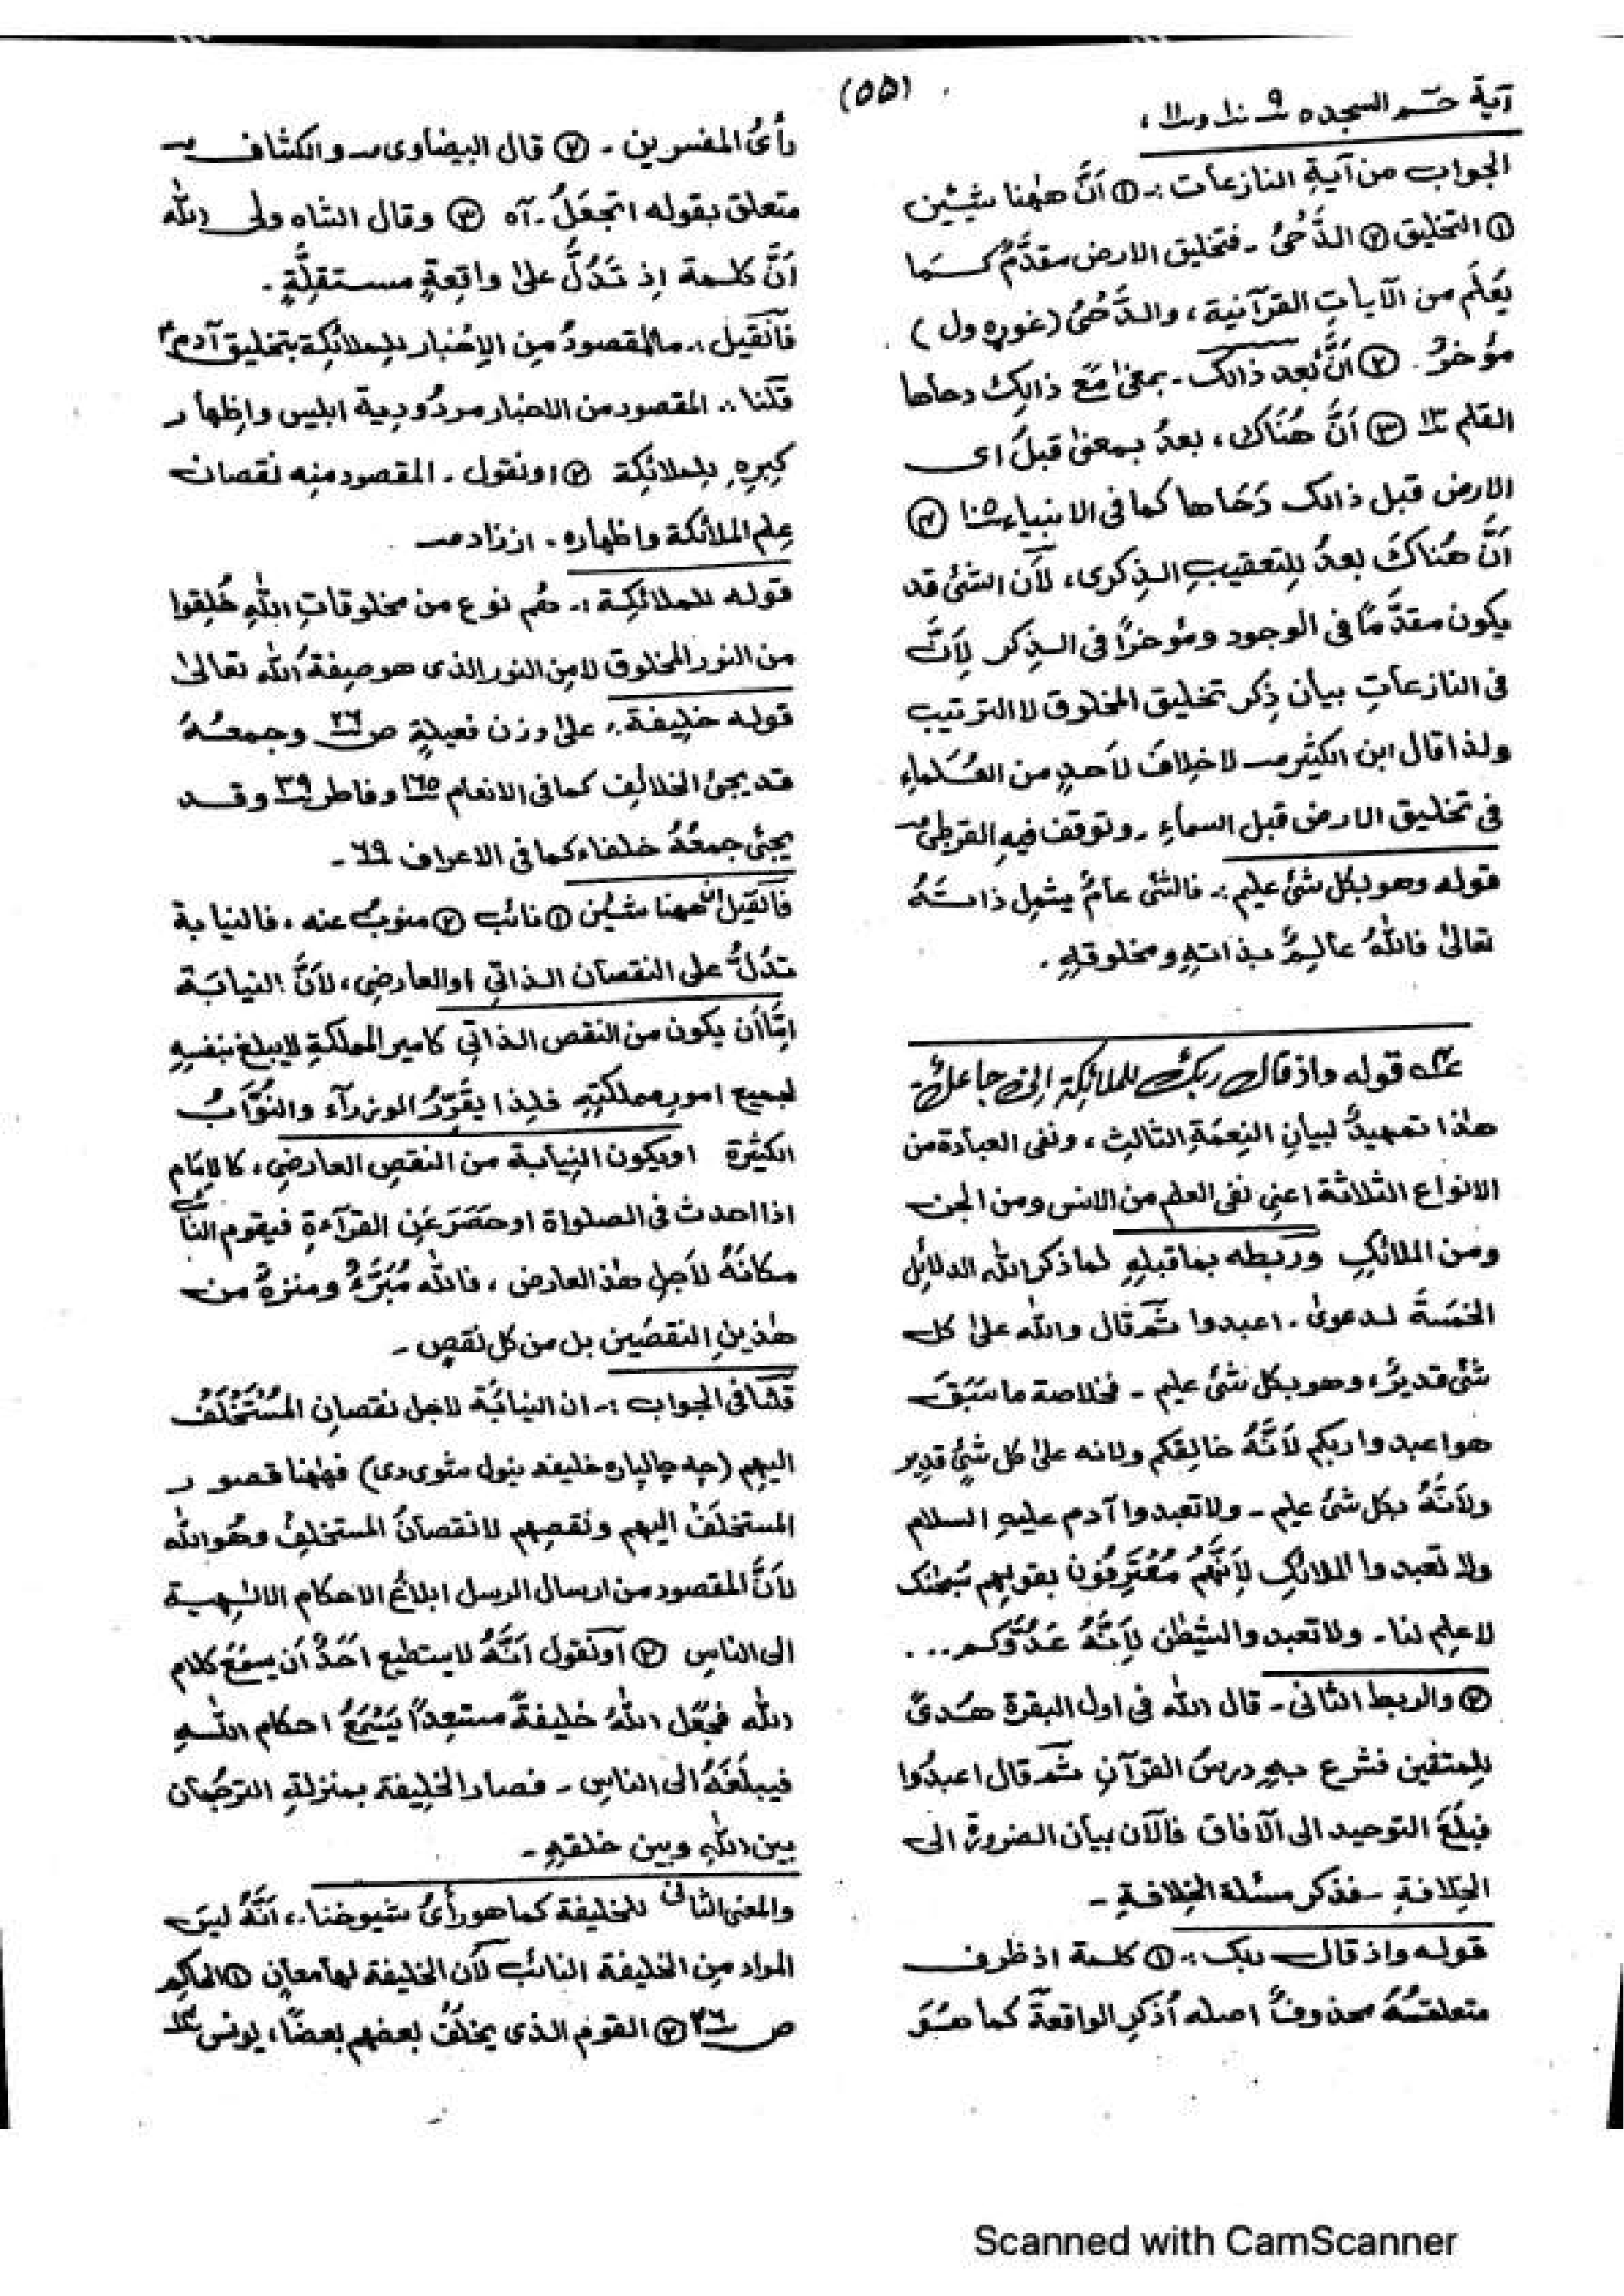 (٥٥)
آية حٰم السجده ٩ ١٠ و ١١،
الجواب من آيةِ النازعات:- ① اَنَّ هٰهنا شيئين
① التخليق ② الدَّحْىُ - فتخليق الارض مقدَّمٌ كـمَا
يُعلَم من الآياتِ القرآنية، والدَّحْىُ (غوړه ول)
مؤخرٌ. ② اَنَّ بَعد ذالك - بمعنىٰ مَعَ ذالِك دحاها
القلم ١٣ ③ اَنَّ هُنَاك، بعدُ بمعنىٰ قبلُ اى
الارض قبل ذالك دَحَاها كما فى الانبياء ١٠٥ ④
اَنَّ هُنَاكَ بعدُ لِلتعقيبِ الذِكرى، لأن الشئ قد
يكون مقدَّمًا فى الوجود ومُوخرًا فى الذِكر لِأَنَّ
فى النازعاتِ بيان ذِكر تخليق المخلوق لا الترتيب
ولذا قال ابن الكثيرؒ لا خِلافَ لأَحدٍ من العُلماءِ
فى تخليق الارض قبل السماءِ - وتوقف فيهِ القرطبىؒ
قوله وهو بكل شئ عليم:- فالشئ عامٌ يشمل ذاتَهُ
تعالىٰ فاللهُ عالِمٌ بذاتهٖ ومخلوقهٖ.
قوله واذ قال ربك للملائكة انى جاعلٌ
هذا تمهيدٌ لبيانِ النِعمَةِ الثالث، ونفى العبادة من
الانواع الثلاثة اعنى نفى العلم من الانس ومن الجن
ومن الملائكِ وربطه بما قبلهٖ لما ذكر الله الدلائل
الخمسةَ لدعوىٰ - اعبدوا ثم قال والله علىٰ كل
شئ قديرٌ، وهو بكل شئ عليم - فخلاصة ما سَبَقَ
هو اعبدوا ربكم لأَنَّهُ خالِقكم ولانه علىٰ كل شئٍ قدير
ولأَنَّهُ بكل شئ عليم - ولا تعبدوا آدم عليهِ السلام
ولا تعبدوا الملائك لِأَنَّهُمْ مُعْتَرِفُون بقولِهم سُبحٰنك
لا علِم لنا - ولا تعبدوا الشيطٰن لِأَنَّهُ عَدُوُّكم...
② والربط الثانى - قال الله فى اول البقرة هُدىً
للمتقين فشرع بهٖ درسُ القرآنِ ثم قال اعبدُوا
فبلغَ التوحيد الى الآفاق فالآن بيان الضرورة الى
الخِلافةِ - فذكر مسئلة الخِلافةِ -
قوله واذ قال ربك:- ① كلمة اذ ظرف
متعلقُهُ محذوفٌ اصله اُذكرِ الواقعةَ كما هُوَ
رأىُ المفسرين - ② قال البيضاوىؒ والكشافؒ
متعلق بقوله اتجعَلُ - آه ③ وقال الشاه ولى الله
اَنَّ كلمة اِذ تَدُلُّ علىٰ واقعةٍ مستقِلَّةٍ.
فآن قيل:- ما المقصودُ مِن الاِخبار للملائكة بتخليق آدمؑ
قلنا:- المقصود من الاخبار مردُودِية ابليس واظهار
كبرهٖ للملائكة ② او نقول - المقصود منه نقصان
عِلم الملائكة واظهاره - از زادؒ
قوله للملائكة:- هُم نوع من مخلوقاتِ اللهِ خُلِقوا
من النور المخلوق لا مِن النور الذى هو صِفةُ الله تعالىٰ
قوله خليفة:- علىٰ وزن فعيلةٍ ص ٢٦ وجمعُهُ
قد يجئ الخلائِف كما فى الانعام ١٦٥ وفاطر ٣٩ وقد
يجئ جمعُهُ خلفاء كما فى الاعراف ٦٩ -
فآن قيل ههنا شيئين ① نائب ② منوبٌ عنه، فالنيابة
تدُلُّ على النقصان الذاتى او العارضى، لأَنَّ النيابَة
اِمَّا اَن يكون من النقص الذاتى كامير المملكةِ لا يبلغ بنفسِهٖ
لجميع امور مملكتهٖ فلِذا يقَرِّرُ الوزرآء والنُوَّابُ
الكثيرة او يكون النِيابة من النقصِ العارضى، كالاِمَام
اذا احدث فى الصلواة او حَصَرَ عَنِ القرآءةِ فيقوم النائب
مكانَهُ لأَجل هٰذ العارض، فالله مُبَرَّءٌ ومنزهٌ من
هٰذينِ النقصَين بل من كل نقصٍ -
قلنا فى الجواب:- ان النيابَة لاجل نقصانِ المُسْتَخْلَف
اليهم (چه چالپاره خليفه ينول مثوى دى) فههُنا قصور
المستخلَف اليهم ونقصِهم لا نقصانُ المستخلِف وهُو الله
لأَنَّ المقصود من ارسال الرسل ابلاغُ الاحكام الالٰهية
الى الناس ② اَو نقول اَنَّهُ لا يستطيع اَحَدٌ اَن يسمَعَ كلام
الله فجَعَل اللهُ خليفةً مستعِداً يَسْمَعُ احكام اللهِ
فيبلغُهُ الى الناسِ - فصار الخليفة بمنزلةِ الترجُمان
بين اللهِ وبين خلقهٖ -
والمعنى الثانى للخليفة كما هو رأىُ شيوخنا:، اَنَّهُ ليسَ
المراد مِن الخليفة النائبُ لأَن الخليفة لها معانٍ ① الحاكِم
ص ٢٦ ② القوم الذى يخلفُ بعضهم بعضًا، يونس ١٤